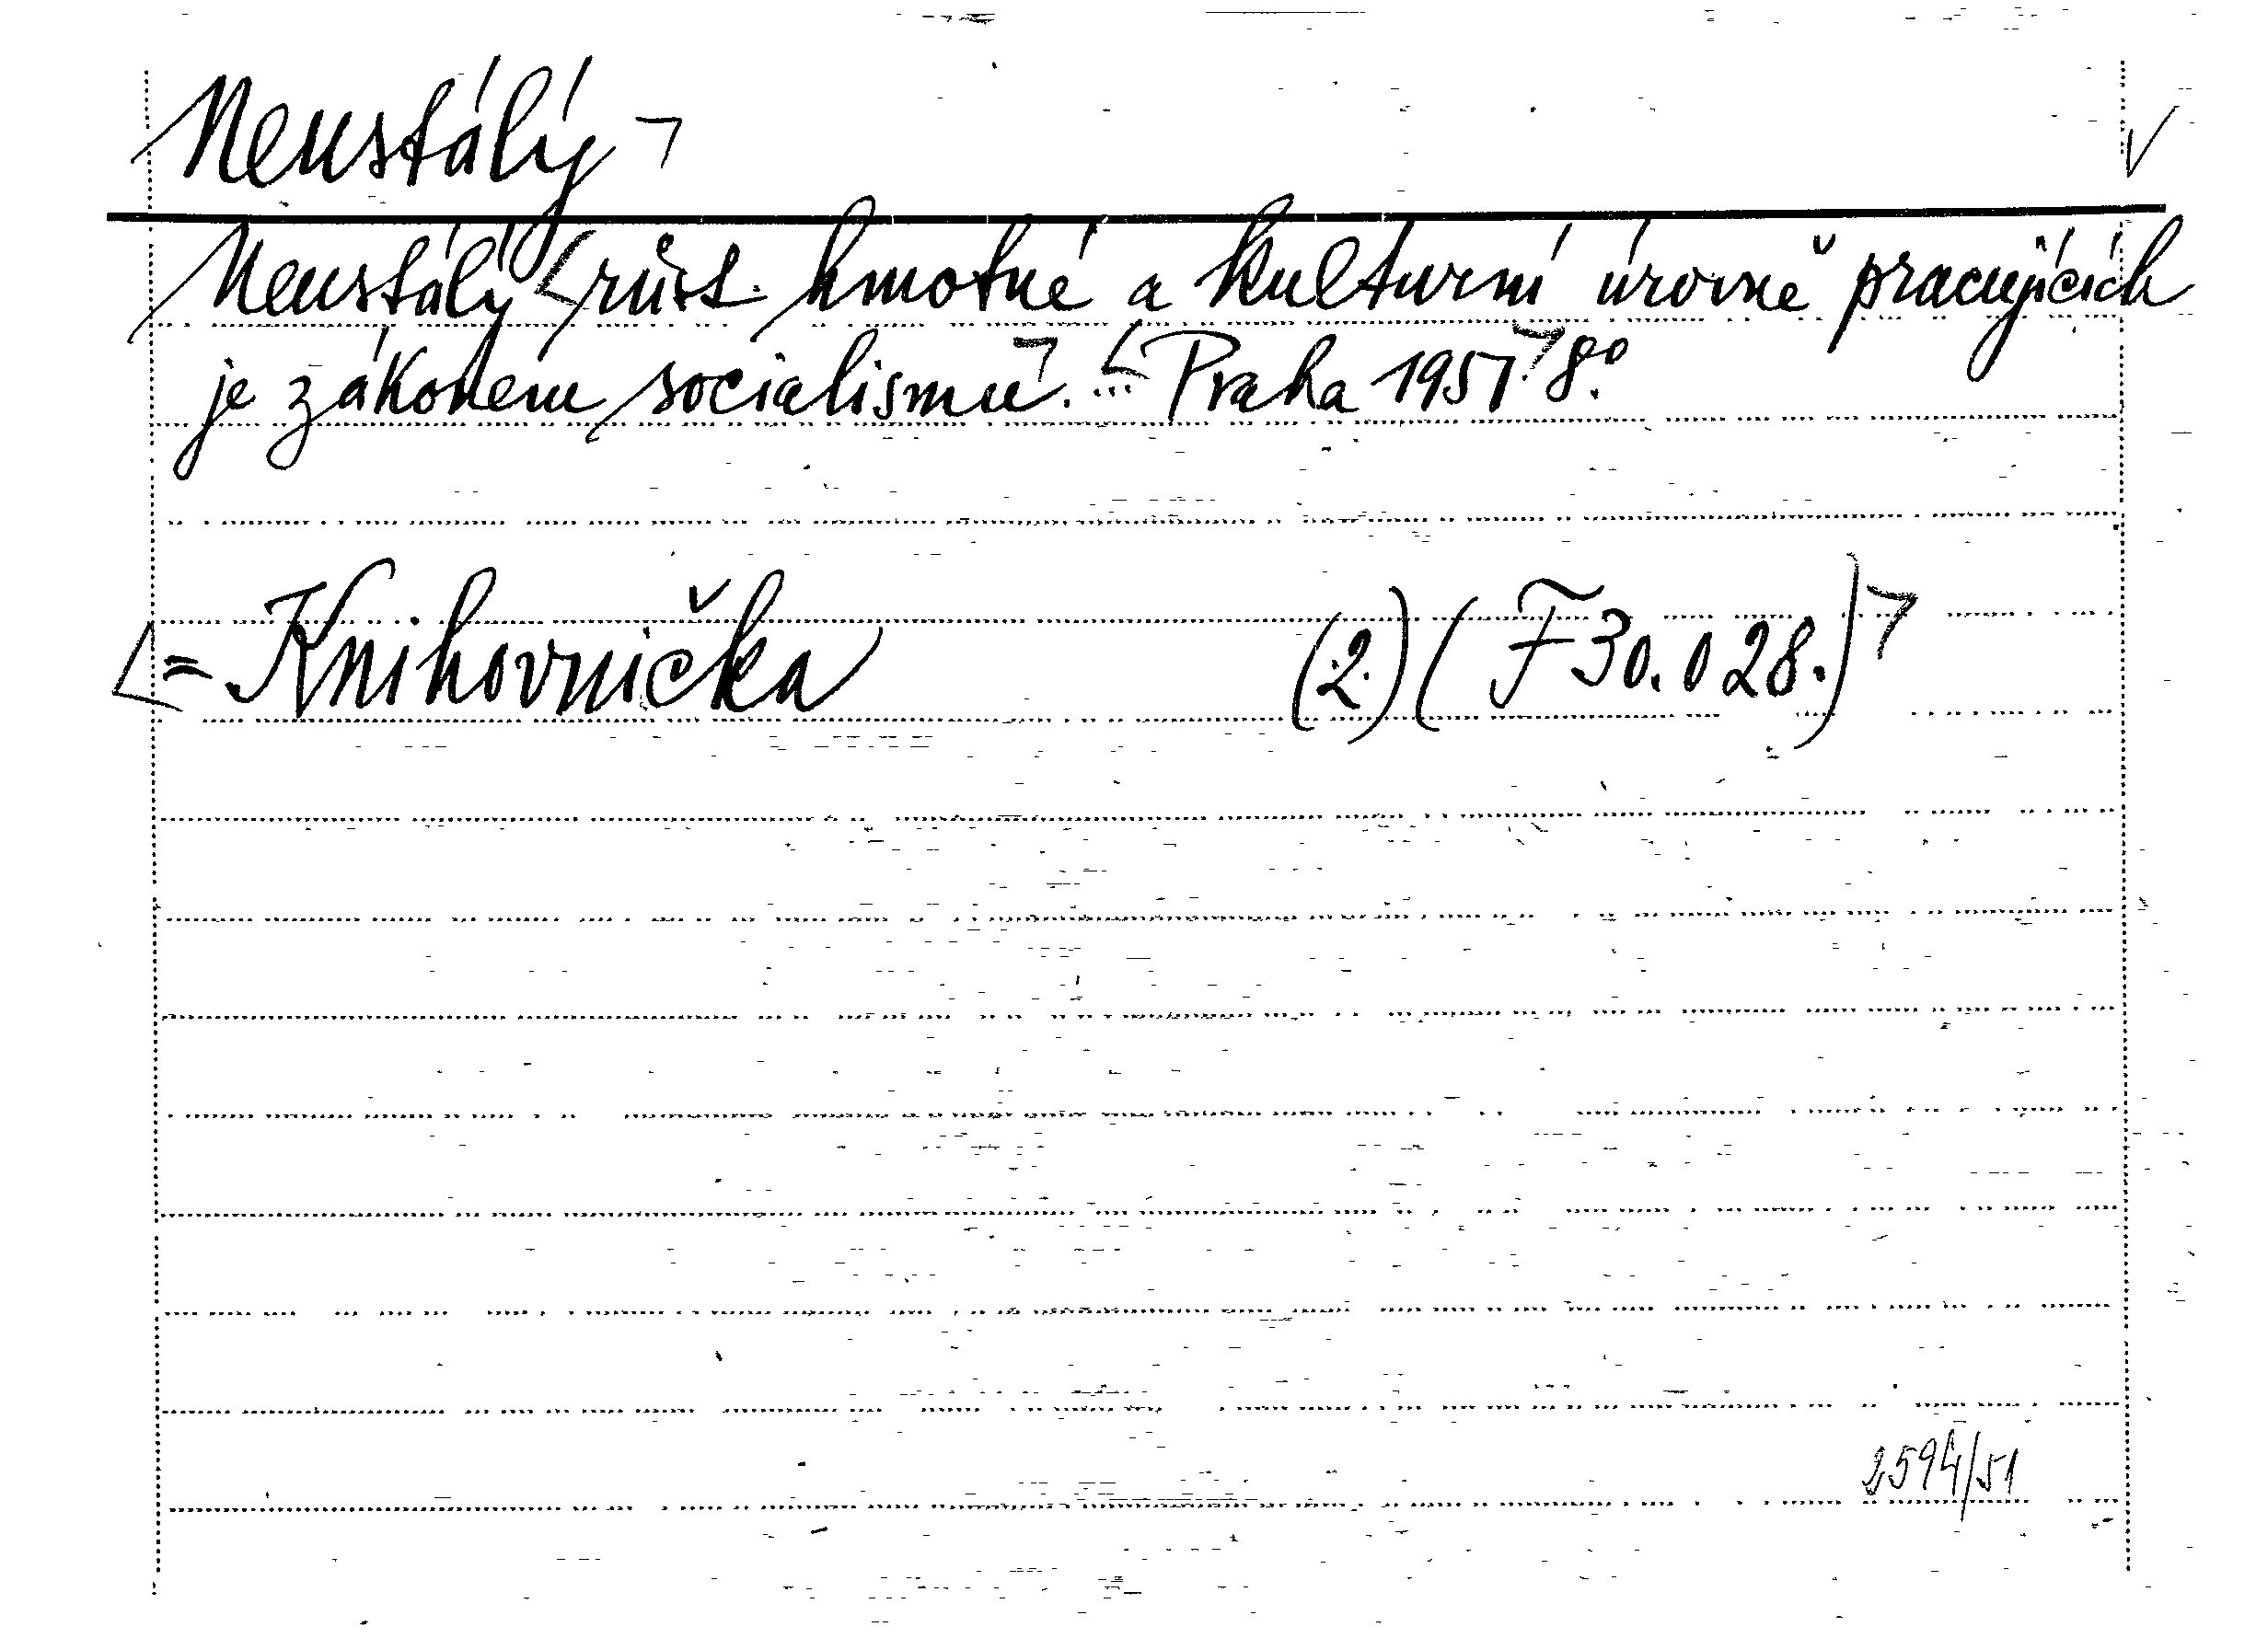 Neustálý ¬
Neustálý růst hmotné a kulturní úrovně pracujících
je zákonem socialismu. ... Praha 1951. 8°.
= Knihovnička (2.) (F 30.028.)
2594/51